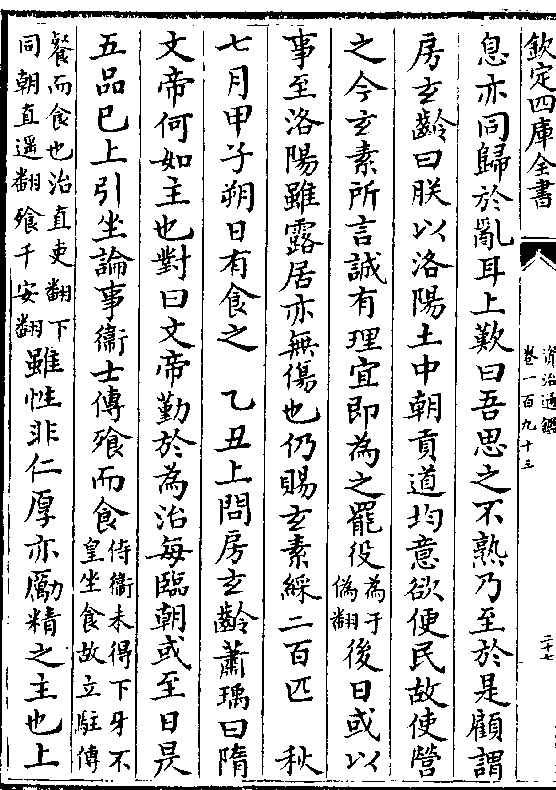 欽定四庫全書
資治通鑑
卷一百九十三
二十七
息亦同歸於亂耳上歎曰吾思之不熟乃至於是顧謂
房玄齡曰朕以洛陽土中朝貢道均意欲便民故使營
之今玄素所言誠有理宜即為之罷役為于偽翻後日或以
事至洛陽雖露居亦無傷也仍賜玄素綵二百匹 秋
七月甲子朔日有食之 乙丑上問房玄齡蕭瑀曰隋
文帝何如主也對曰文帝勤於為治每臨朝或至日昃
五品已上引坐論事衞士傳飱而食侍衞未得下牙不皇坐食故立駐傳
餐而食也治直吏翻下同朝直遥翻飱千安翻雖性非仁厚亦勵精之主也上